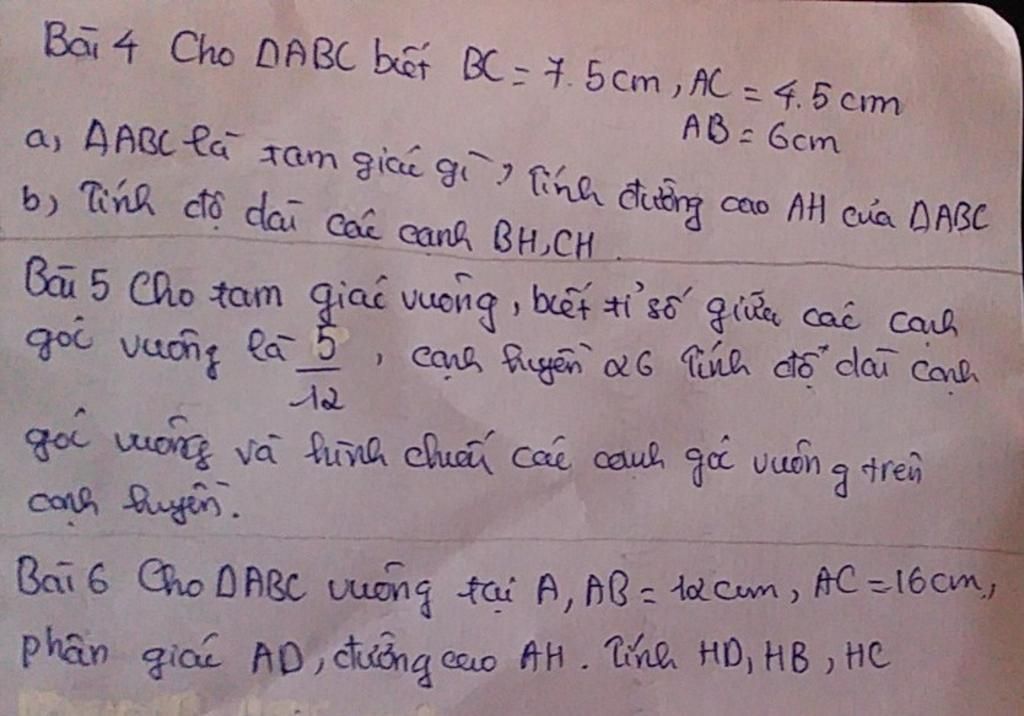 Bài 4 Cho ΔABC biết BC = 7.5cm, AC = 4.5cm
AB = 6cm
a, ΔABC là tam giác gì, Tính đường cao AH của ΔABC
b, Tính độ dài các cạnh BH, CH.
Bài 5 Cho tam giác vuông, biết tỉ số giữa các cạnh
góc vuông là 5/12, cạnh huyền 26 Tính độ dài cạnh
góc vuông và hình chiếu các cạnh góc vuông trên
cạnh huyền.
Bài 6 Cho ΔABC vuông tại A, AB = 12cm, AC = 16cm,
phân giác AD, đường cao AH. Tính HD, HB, HC